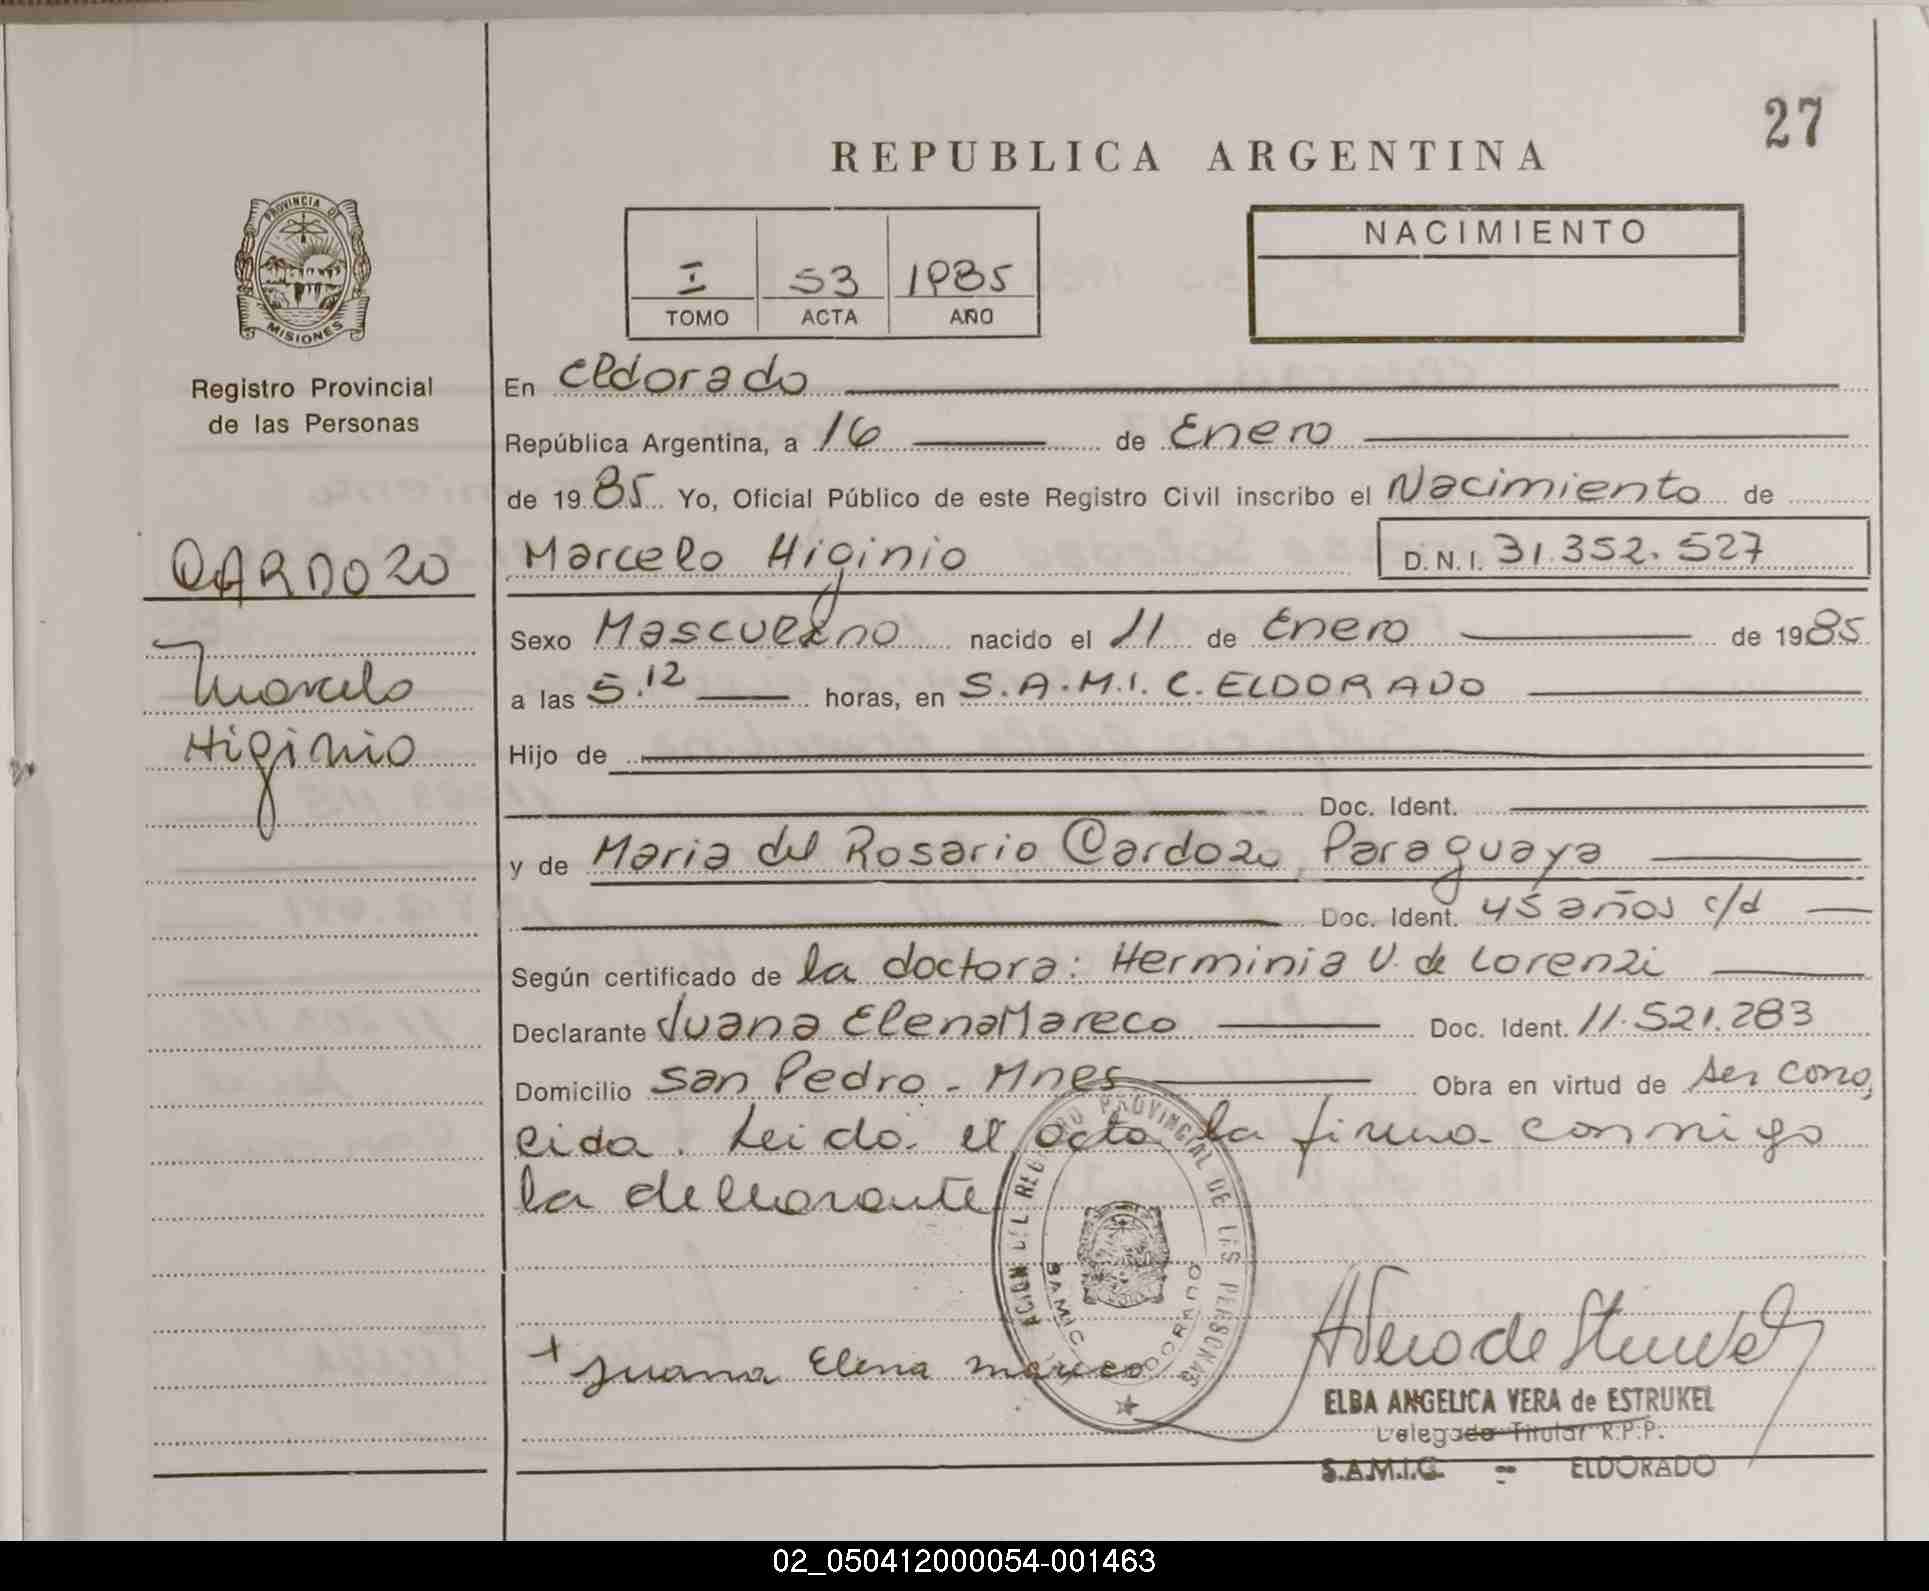 27
REPUBLICA ARGENTINA
PROVINCIA DE
MISIONES
Registro Provincial
de las Personas
I 53 1985
TOMO ACTA AÑO
NACIMIENTO
En Eldorado
República Argentina, a 16 de Enero
de 19 85 Yo, Oficial Público de este Registro Civil inscribo el Nacimiento de
CARDOZO
Marcelo
Higinio
Marcelo Higinio D.N.I. 31.352.527
Sexo Masculino nacido el 11 de Enero de 1985
a las 5.12 horas, en S.A.M.I.C. ELDORADO
Hijo de
Doc. Ident.
y de Maria del Rosario Cardozo, Paraguaya
Doc. Ident. 45 años c/d
Según certificado de la doctora: Herminia V. de Lorenzi
Declarante Juana Elena Mareco Doc. Ident. 11.521.283
Domicilio San Pedro - Mnes Obra en virtud de ser cono
cida. Leido el acta la firma conmigo
la declarante
REGISTRO PROVINCIAL DE LAS PERSONAS
SAMIC ELDORADO
+ Juana Elena mareco
ELBA ANGELICA VERA de ESTRUKEL
Delegada Titular R.P.P.
S.A.M.I.C. - ELDORADO
02_050412000054-001463